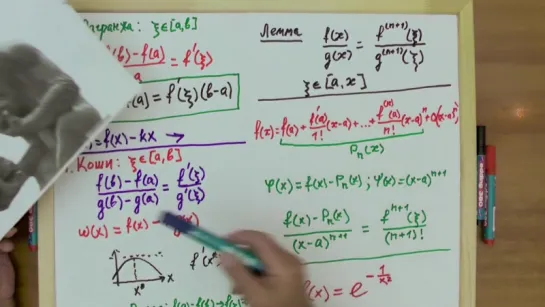 ξ∈[a,b]
(b)-f(a) = f'(ξ)
(a) = f'(ξ)(b-a)
= f(x) - kx →
Коши: ξ∈[a,b]
(f(b)-f(a))/(g(b)-g(a)) = f'(ξ)/g'(ξ)
ω(x) = f(x) -
x
Лемма
f(x)/g(x) = f^(n+1)(ξ)/g^(n+1)(ξ)
ξ∈[a,x]
f(x) = f(a) + f'(a)/1! (x-a) + ... + f^(n)(a)/n! (x-a)^n +
P_n(x)
φ(x) = f(x) - P_n(x); ψ(x) = (x-a)^(n+1)
(f(x) - P_n(x))/(x-a)^(n+1) = f^(n+1)(ξ)/(n+1)!
f(x) = e^(-1/x²)